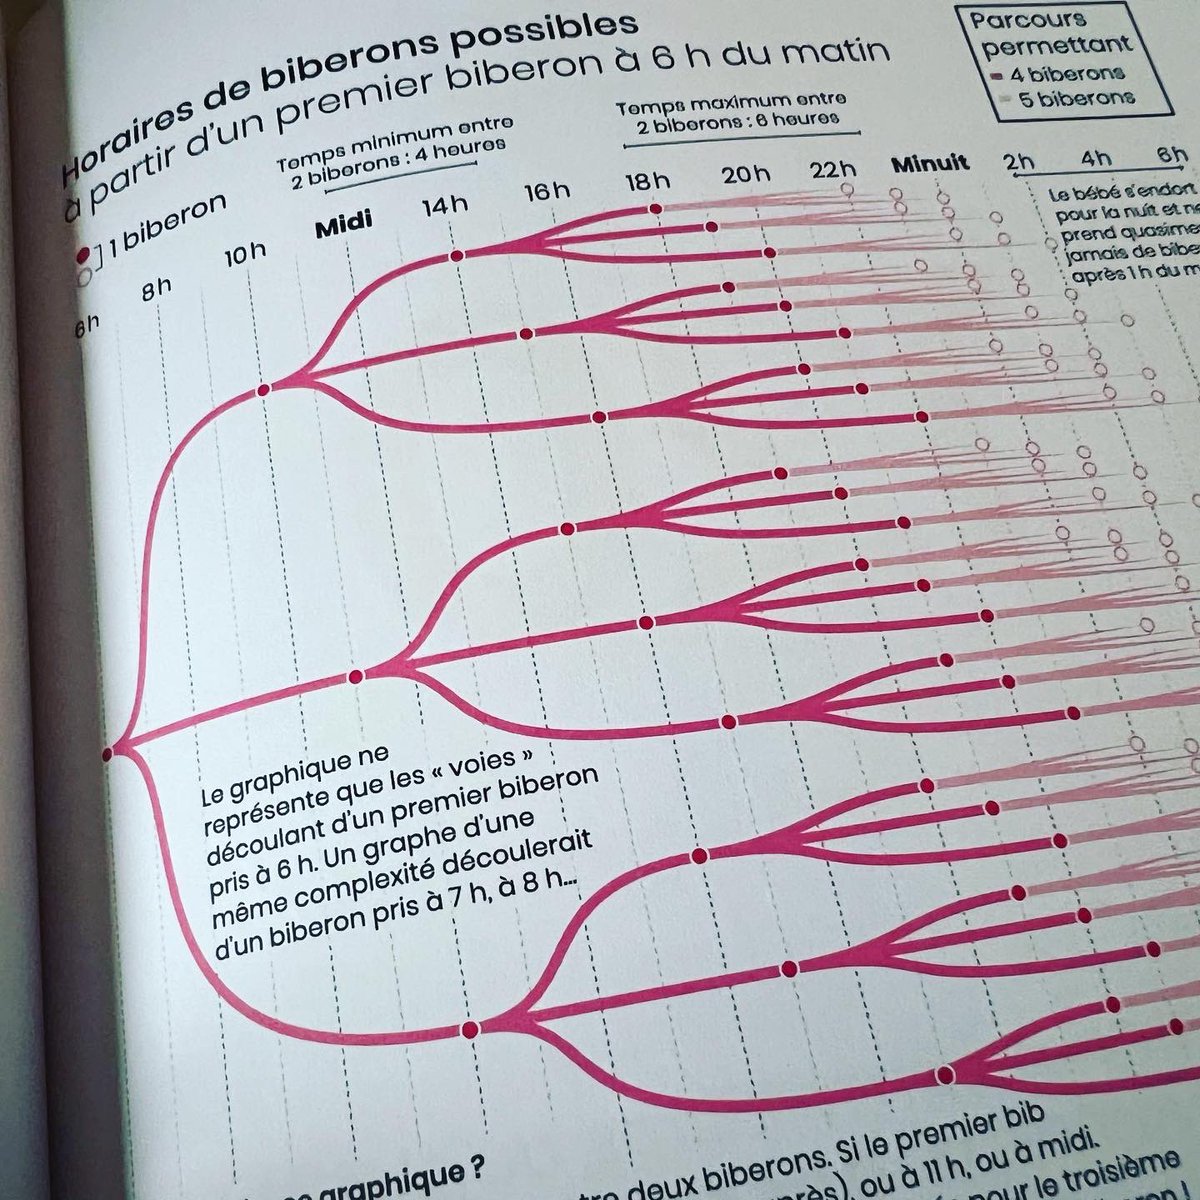 Horaires de biberons possibles
à partir d'un premier biberon à 6 h du matin
Parcours
permettant
4 biberons
5 biberons
Temps minimum entre
2 biberons : 4 heures
Temps maximum entre
2 biberons : 6 heures
1 biberon
6h
8h
10h
Midi
14h
16h
18h
20h
22h
Minuit
2h
4h
6h
Le bébé s'endort
pour la nuit et ne
prend quasime
jamais de bibe
après 1 h du m
Le graphique ne
représente que les « voies »
découlant d'un premier biberon
pris à 6 h. Un graphe d'une
même complexité découlerait
d'un biberon pris à 7 h, à 8 h...
graphique ?
deux biberons. Si le premier bib
ou à 11 h, ou à midi.
pour le troisième